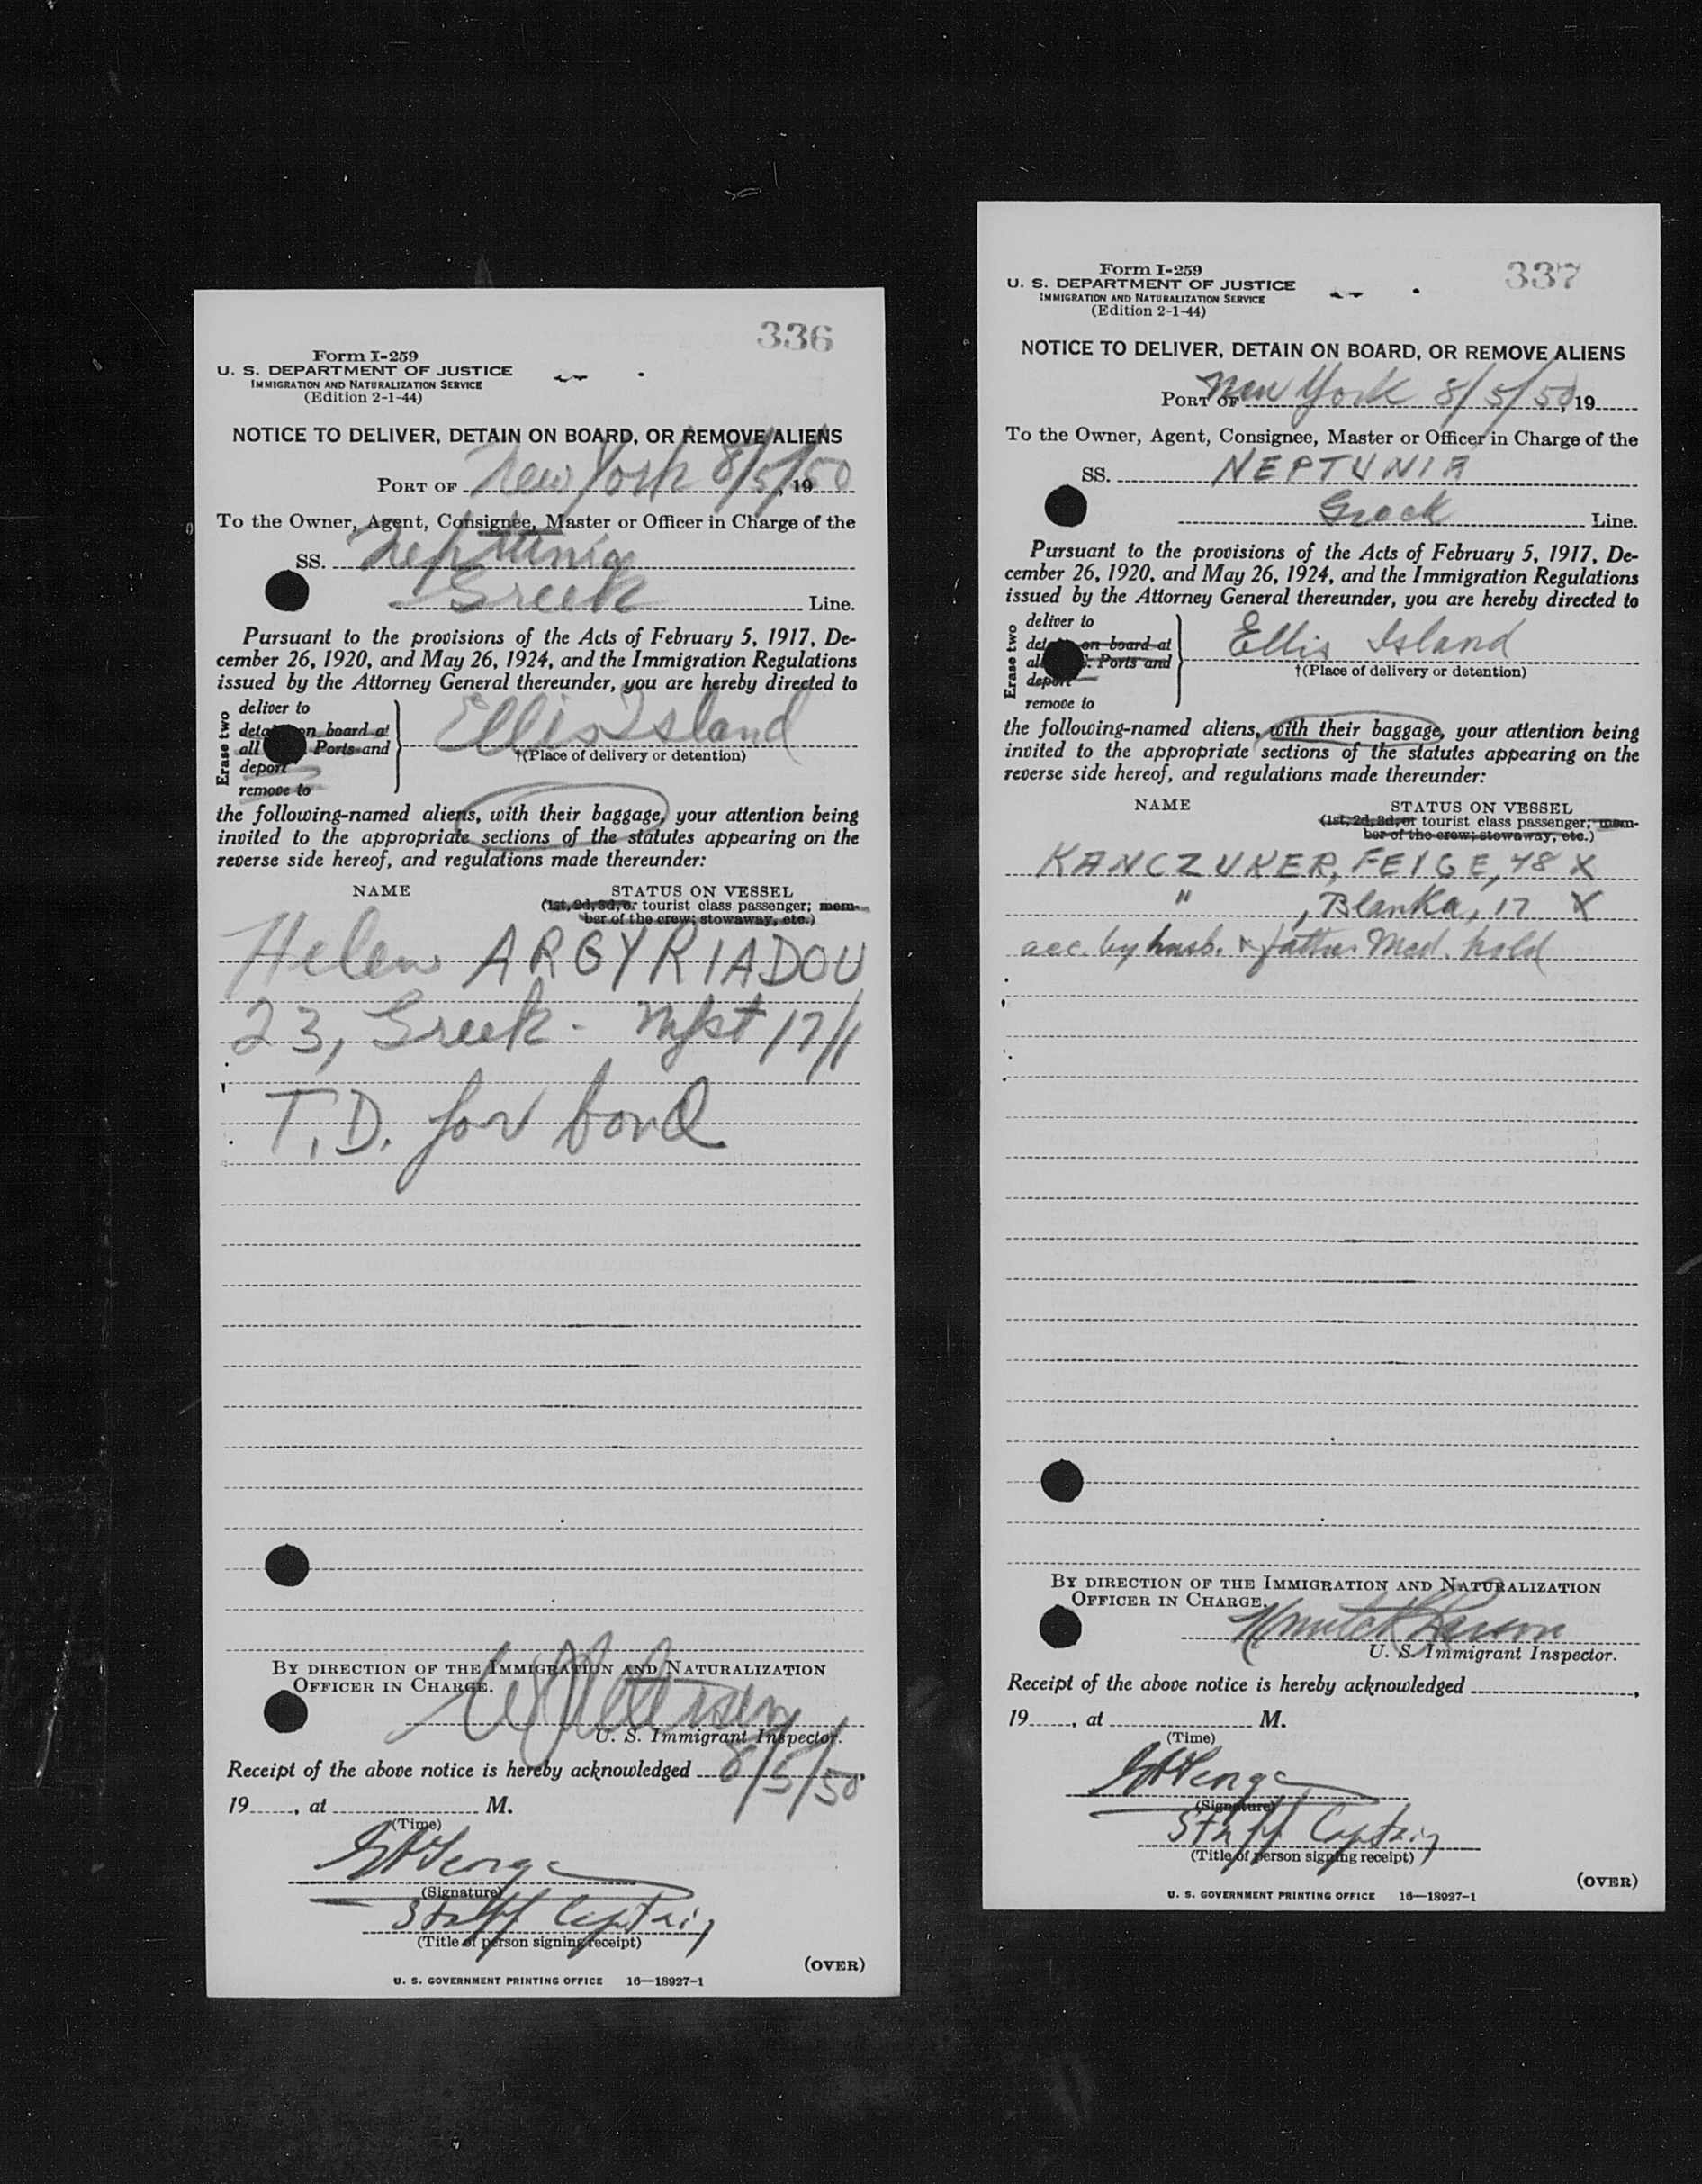 336
Form I-259
U. S. DEPARTMENT OF JUSTICE
IMMIGRATION AND NATURALIZATION SERVICE
(Edition 2-1-44)
NOTICE TO DELIVER, DETAIN ON BOARD, OR REMOVE ALIENS
PORT OF New York 8/5/50, 19
To the Owner, Agent, Consignee, Master or Officer in Charge of the
SS. Neptunia
Greek Line.
Pursuant to the provisions of the Acts of February 5, 1917, De-
cember 26, 1920, and May 26, 1924, and the Immigration Regulations
issued by the Attorney General thereunder, you are hereby directed to
Erase two
deliver to
on board at
all Ports and
deport
remove to
Ellis Island
†(Place of delivery or detention)
the following-named aliens, with their baggage, your attention being
invited to the appropriate sections of the statutes appearing on the
reverse side hereof, and regulations made thereunder:
NAME STATUS ON VESSEL
(1st, 2d, 3d, or tourist class passenger; mem-
ber of the crew; stowaway, etc.)
Helen ARGYRIADOU
23, Greek - Mfst 17/1
T.D. for bond
BY DIRECTION OF THE IMMIGRATION AND NATURALIZATION
OFFICER IN CHARGE.
U. S. Immigrant Inspector.
Receipt of the above notice is hereby acknowledged 8/5/50,
19......, at M.
(Time)
(Signature)
Staff Captain
(Title of person signing receipt)
(OVER)
U. S. GOVERNMENT PRINTING OFFICE 16—18927-1
337
Form I-259
U. S. DEPARTMENT OF JUSTICE
IMMIGRATION AND NATURALIZATION SERVICE
(Edition 2-1-44)
NOTICE TO DELIVER, DETAIN ON BOARD, OR REMOVE ALIENS
PORT OF New York 8/5/50, 19
To the Owner, Agent, Consignee, Master or Officer in Charge of the
SS. NEPTUNIA
Greek Line.
Pursuant to the provisions of the Acts of February 5, 1917, De-
cember 26, 1920, and May 26, 1924, and the Immigration Regulations
issued by the Attorney General thereunder, you are hereby directed to
Erase two
deliver to
on board at
Ports and
deport
remove to
Ellis Island
†(Place of delivery or detention)
the following-named aliens, with their baggage, your attention being
invited to the appropriate sections of the statutes appearing on the
reverse side hereof, and regulations made thereunder:
NAME STATUS ON VESSEL
(1st, 2d, 3d, or tourist class passenger; mem-
ber of the crew; stowaway, etc.)
KANCZUKER, FEIGE, 48 X
" , Blanka, 17 X
acc. by husb. & father Med. hold
BY DIRECTION OF THE IMMIGRATION AND NATURALIZATION
OFFICER IN CHARGE.
U. S. Immigrant Inspector.
Receipt of the above notice is hereby acknowledged ,
19......, at M.
(Time)
(Signature)
Staff Captain
(Title of person signing receipt)
(OVER)
U. S. GOVERNMENT PRINTING OFFICE 16—18927-1